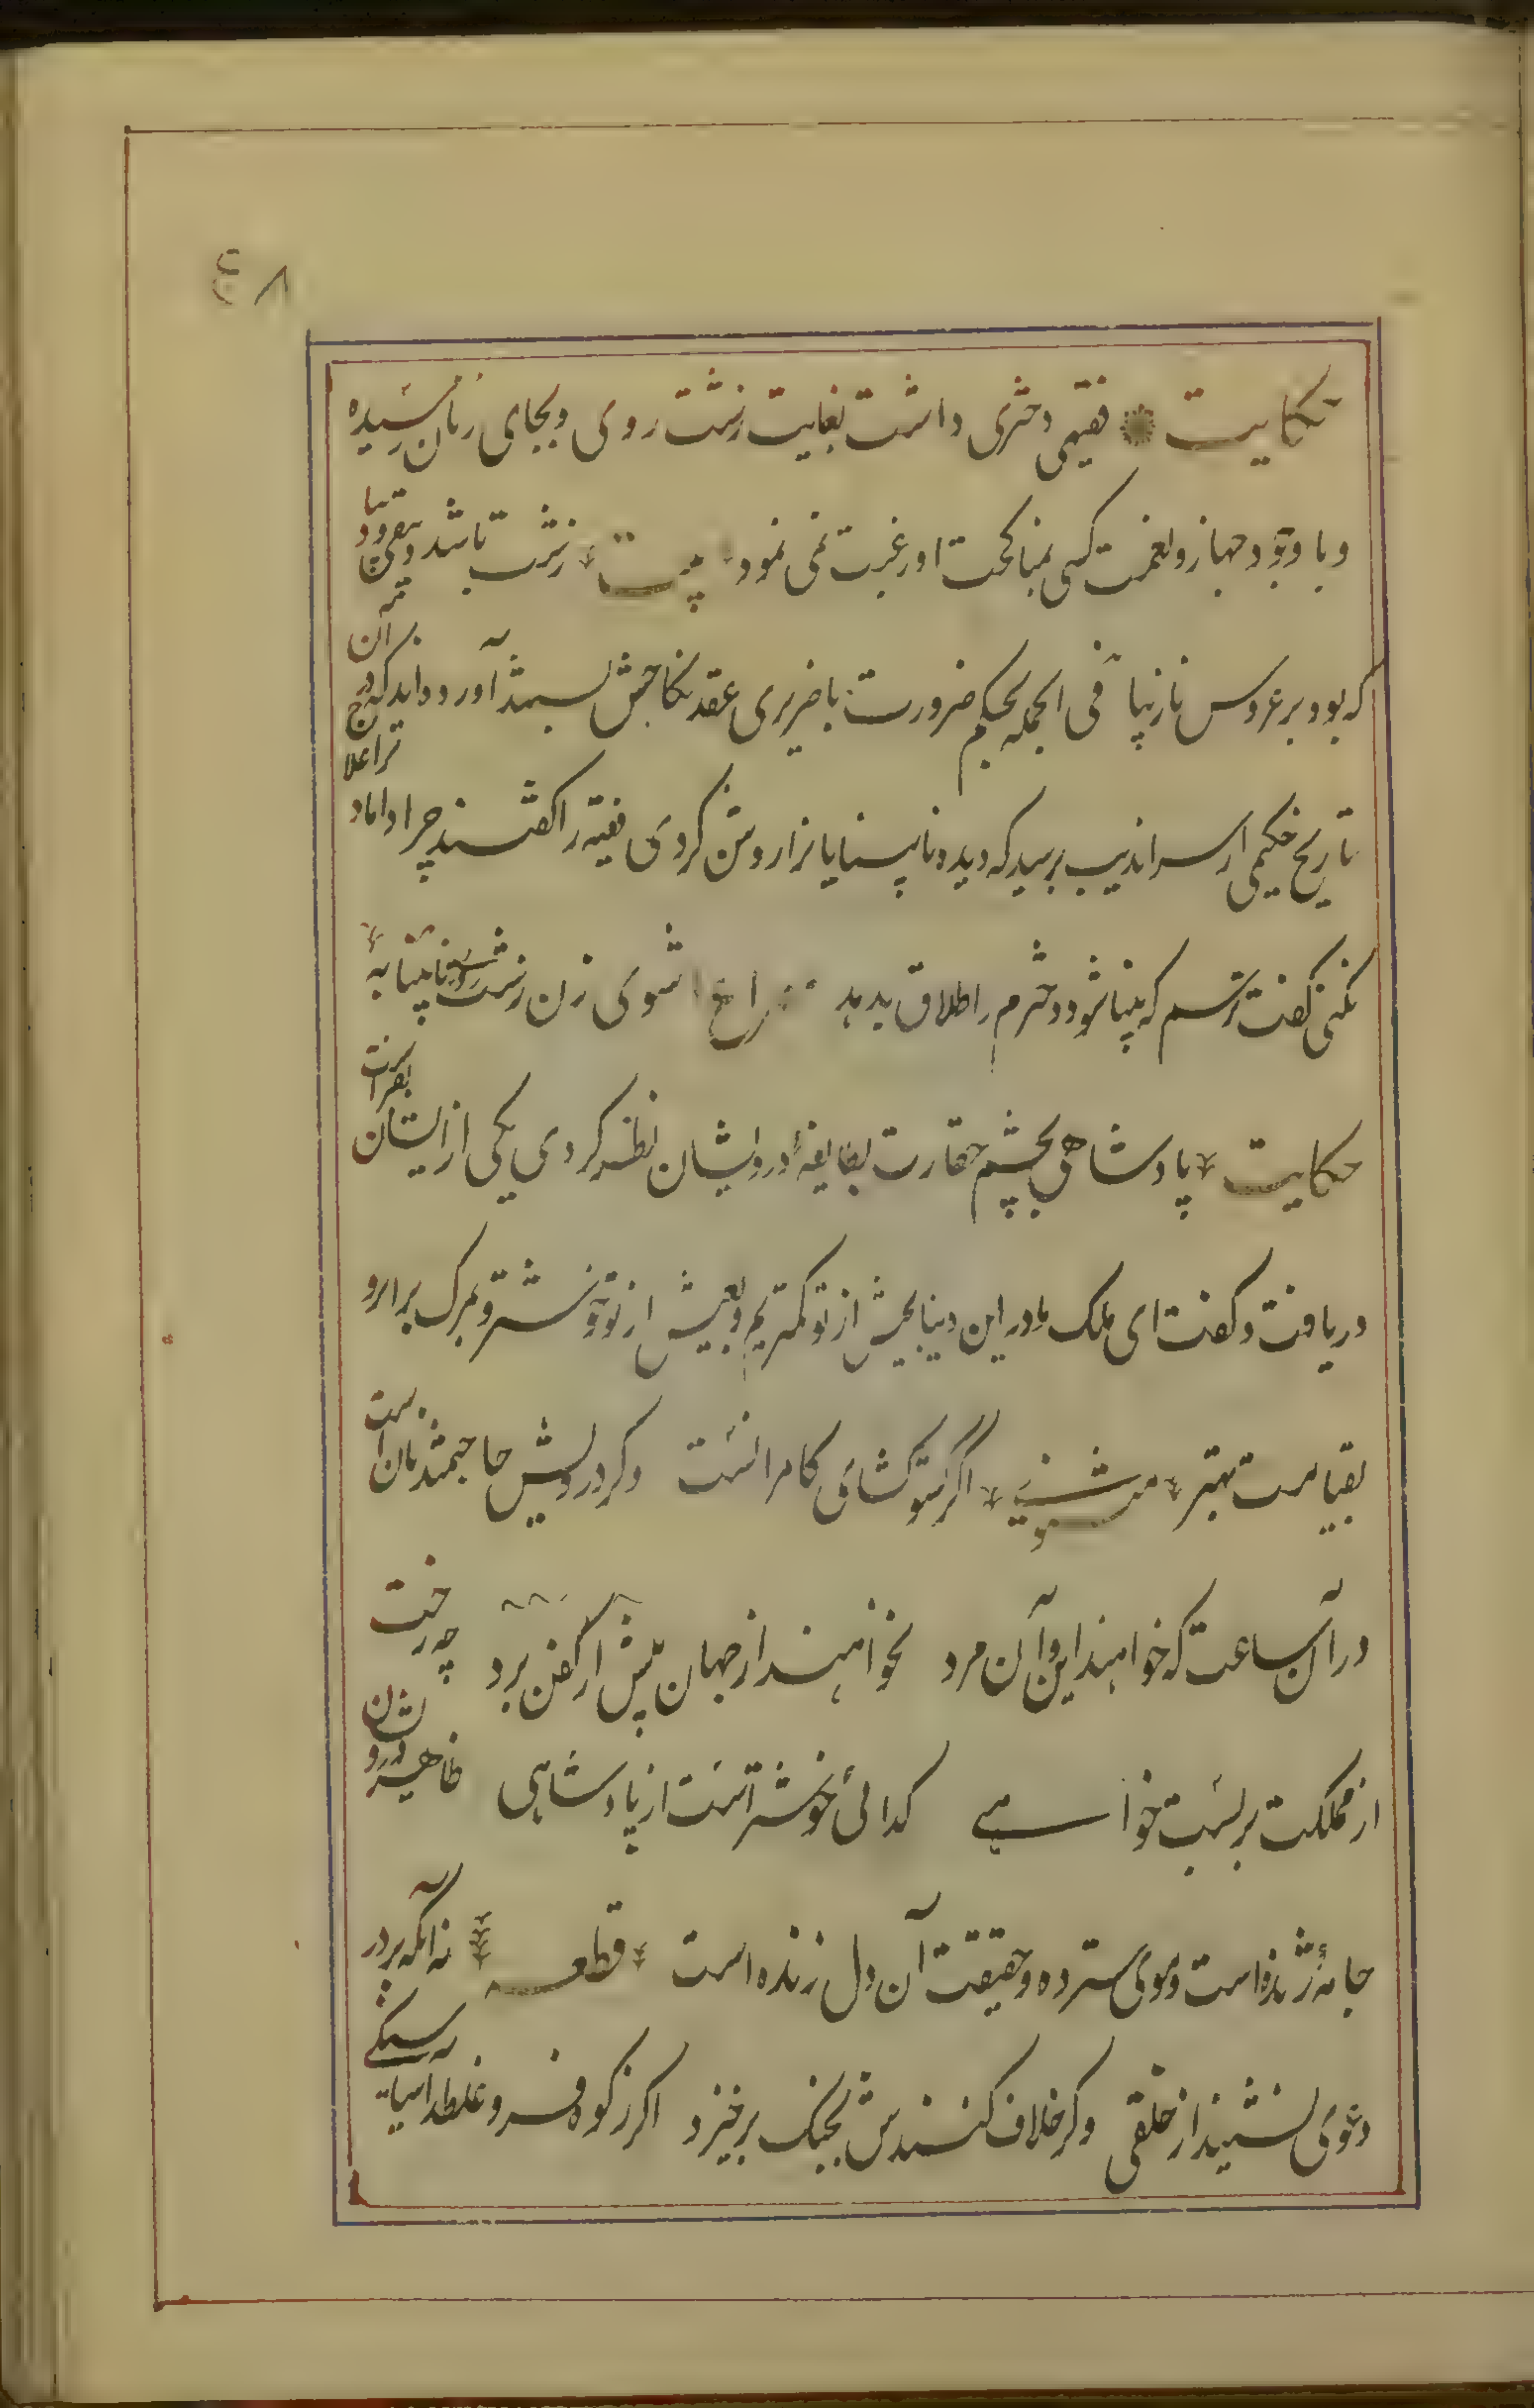 ۴۸
حکایت فقیهی دختری داشت بغایت زشت روی و بجای زنان رسیده
و با وجود جهاز و نعمت کسی بمناکحت او رغبت نمی نمود بیت زشت باشد دبیقی و دیبا
که بود بر عروس نازیبا فی الجمله بحکم ضرورت با ضریری عقد نکاحش ببستند آورده اند که در آن
تاریخ حکیمی از سراندیب برسید که دیده نابینایانرا روشن کردی فقیه را گفتند چرا داماد ترا علاج
نکنی گفت ترسم که بینا شود دخترم را طلاق بدهد مصراع شوی زن زشت روی نابینا به
حکایت پادشاهی بچشم حقارت بطایفهٔ درویشان نظر کردی یکی از ایشان بفراست
دریافت و گفت ای ملک ما در این دنیا بجیش از تو کمتریم و بعیش از تو خوشتر و بمرگ برابر و
بقیامت بهتر مثنوی اگر کشور کشای کامرانست وگر درویش حاجتمند نان است
در آن ساعت که خواهند این و آن مرد نخواهند از جهان بیش از کفن برد چو رخت
از مملکت بربست خواهی گدائی خوشتر است از پادشاهی ظاهر درویشان
جامهٔ ژنده است و موی سترده و حقیقت آن دل زنده است قطعه نه آنکه بر در
دعوی نشیند از خلقی وگر خلاف کنندش بجنگ برخیزد اگر ز کوه فرو غلطد آسیا سنگی